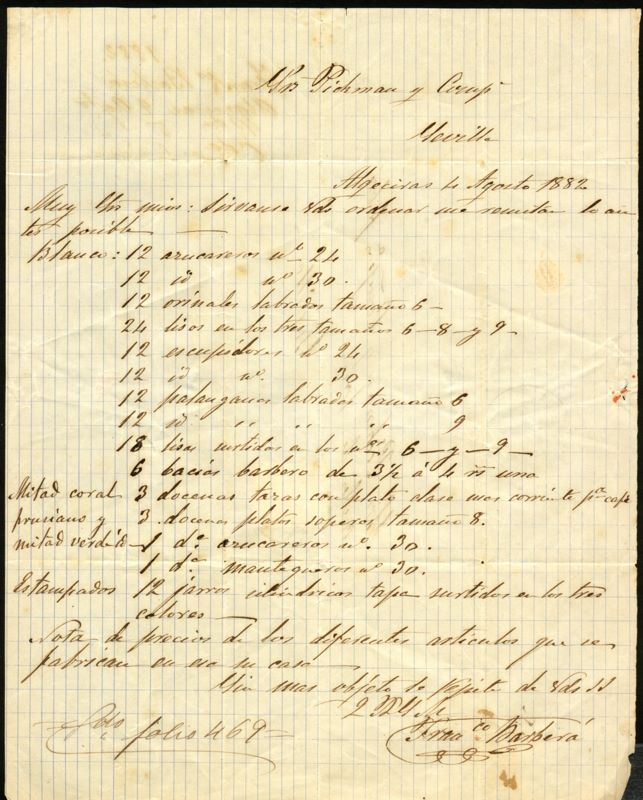 Sres Pickman y Compª
Sevilla
Algeciras 4 Agosto 1882
Muy Srs mios: sirvanse Vds ordenar me remitan lo an
tes posible —
Blanco: 12 azucareros nº 24
12 id nº 30.
12 orinales labrados tamaño 6 –
24 lisos en los tres tamaños 6 – 8 – y 9 –
12 escupidores nº 24
12 id nº. 30.
12 palanganas labrados tamaño 6
12 id " " " 9
18 lisas surtidos en los nos 6 – y – 9 –
6 bacias barbero de 3½ á 4 rs una
Mitad coral 3 docenas tazas con plato clase mas corriente pª café
prusiano y 3. docenas platos soperos tamaño 8.
mitad verde id – 1 dª azucareros nº. 30.
1 dª mantequeros nº 30.
Estampados 12 jarros cilindricos tapa surtidos en los tres
colores —
Nota de precios de los diferentes articulos que se
fabrican en esa su casa —
Sin mas objeto se repite de Vds SS
folio 469 =
Franco Barberá